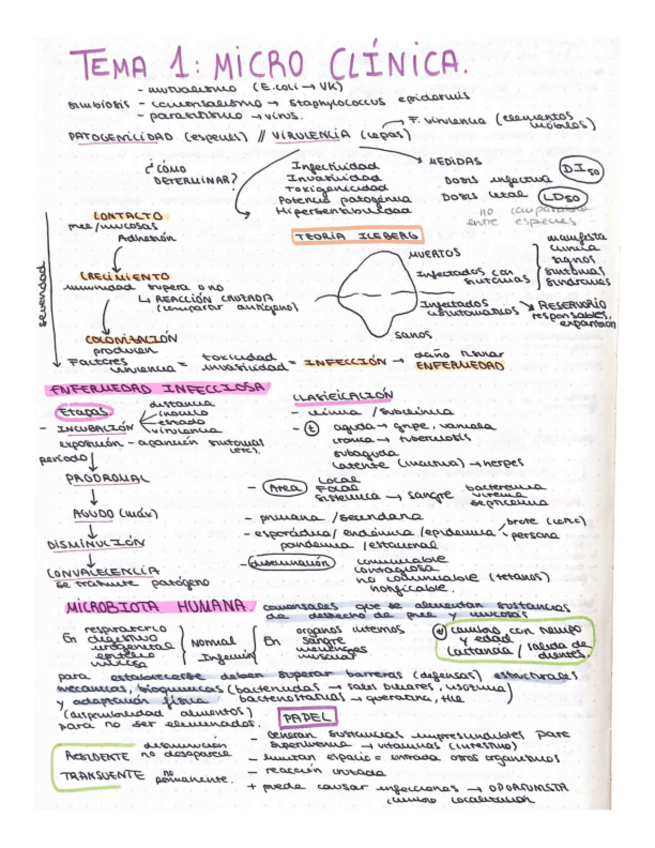 TEMA 1: MICRO CLÍNICA.
- mutualismo (E.coli → VK)
simbiosis - comensalismo → Staphylococcus epidermis
- parasitismo → virus.
F. virulencia (elementos móviles)
PATOGENICIDAD (especies) // VIRULENCIA (cepas)
¿CÓMO DETERMINAR?
Infectividad
Invasividad
Toxigenicidad
Potencia patogénica
Hipersensibilidad
MEDIDAS
Dosis infectiva DI50
Dosis letal LD50
no comparable entre especies
severidad
CONTACTO
piel/mucosas
Adhesión
CRECIMIENTO
inmunidad supera o no
↳ REACCIÓN CRUZADA
(compartir antígeno)
COLONIZACIÓN
producen
Factores virulencia - toxicidad invasividad = INFECCIÓN → daño tisular ENFERMEDAD
TEORÍA ICEBERG
MUERTOS
Infectados con síntomas
manifesta
clínica
signos
síntomas
síndromes
Infectados asintomáticos → RESERVORIO
responsables,
expansión
sanos
ENFERMEDAD INFECCIOSA
Etapas
- INCUBACIÓN
distancia
inóculo
estado
virulencia
exposición - aparición síntomas
(etc).
período
PRODROMAL
AGUDO (máx)
DISMINUCIÓN
CONVALECENCIA
se transmite patógeno
CLASIFICACIÓN
- clínica / subclínica
- t aguda → gripe, varicela
crónica → tuberculosis
subaguda
latente (inactiva) → herpes
- Área
Local
Focal
Sistémica → sangre
bacteremia
viremia
septicemia
- primaria / secundaria
- esporádica / endémica / epidemia
brote
persona
pandemia / estacional
- diseminación
comunicable
contagiosa
no comunicable (tétanos)
notificable.
MICROBIOTA HUMANA. comensales que se alimentan sustancias
de desecho de piel y mucosas
En
respiratorio
digestivo
urogenital
epitelio
mucosa
Normal
Infección
En
órganos internos
sangre
meninges
muscular
cambia con tiempo
y edad
(lactancia / salida de
dientes.
para establecerse deben superar barreras (defensas) estructurales
mecánicas, bioquímicas (bactericidas → sales biliares, lisozima)
y adaptación física bacteriostáticas → queratina,
(disponibilidad alimentos)
para no ser eliminados.
PAPEL
RESIDENTE
disminución
no desaparece
TRANSEÚNTE no permanente.
- Generan sustancias imprescindibles para
supervivencia → vitaminas (intestino)
- limitan espacio = entrada otros organismos
- reacción cruzada
+ puede causar infecciones → OPORTUNISTA
cambio localización